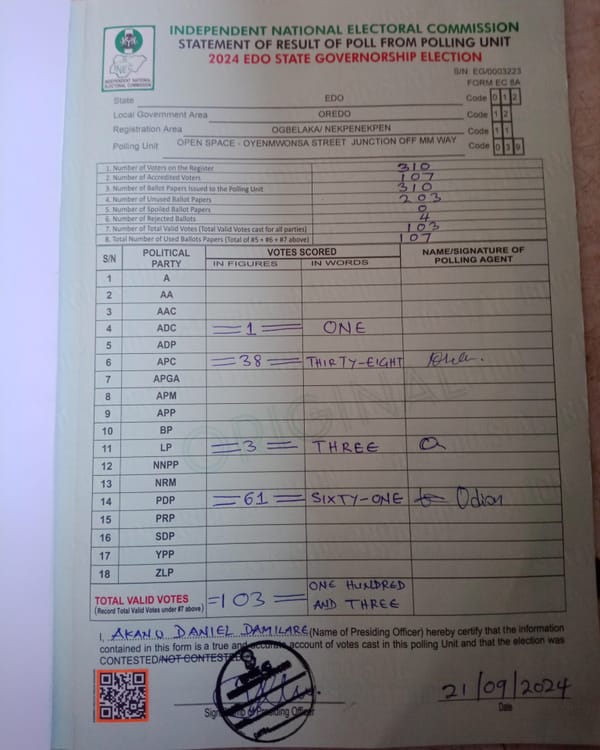 INDEPENDENT NATIONAL ELECTORAL COMMISSION
STATEMENT OF RESULT OF POLL FROM POLLING UNIT
2024 EDO STATE GOVERNORSHIP ELECTION
INEC
INDEPENDENT NATIONAL
ELECTORAL COMMISSION
S/N: EG/0003223
FORM EC 8A
State EDO Code 0 1 2
Local Government Area OREDO Code 1 2
Registration Area OGBELAKA/ NEKPENEKPEN Code 1 1
Polling Unit OPEN SPACE - OYENMWONSA STREET JUNCTION OFF MM WAY Code 0 3 9
1. Number of Voters on the Register 310
2. Number of Accredited Voters 107
3. Number of Ballot Papers Issued to the Polling Unit 310
4. Number of Unused Ballot Papers 203
5. Number of Spoiled Ballot Papers 0
6. Number of Rejected Ballots 4
7. Number of Total Valid Votes (Total Valid Votes cast for all parties) 103
8. Total Number of Used Ballots Papers (Total of #5 + #6 + #7 above) 107
S/N POLITICAL PARTY VOTES SCORED NAME/SIGNATURE OF POLLING AGENT
IN FIGURES IN WORDS
1 A
2 AA
3 AAC
4 ADC =1= ONE
5 ADP
6 APC =38= THIRTY-EIGHT
7 APGA
8 APM
9 APP
10 BP
11 LP =3= THREE
12 NNPP
13 NRM
14 PDP =61= SIXTY-ONE Odion
15 PRP
16 SDP
17 YPP
18 ZLP
ORIGINAL
TOTAL VALID VOTES =103= ONE HUNDRED AND THREE
(Record Total Valid Votes under #7 above)
I, AKANU DANIEL DAMILARE (Name of Presiding Officer) hereby certify that the information
contained in this form is a true and accurate account of votes cast in this polling Unit and that the election was
CONTESTED/NOT CONTESTED
Signature of Presiding Officer
21/09/2024
Date